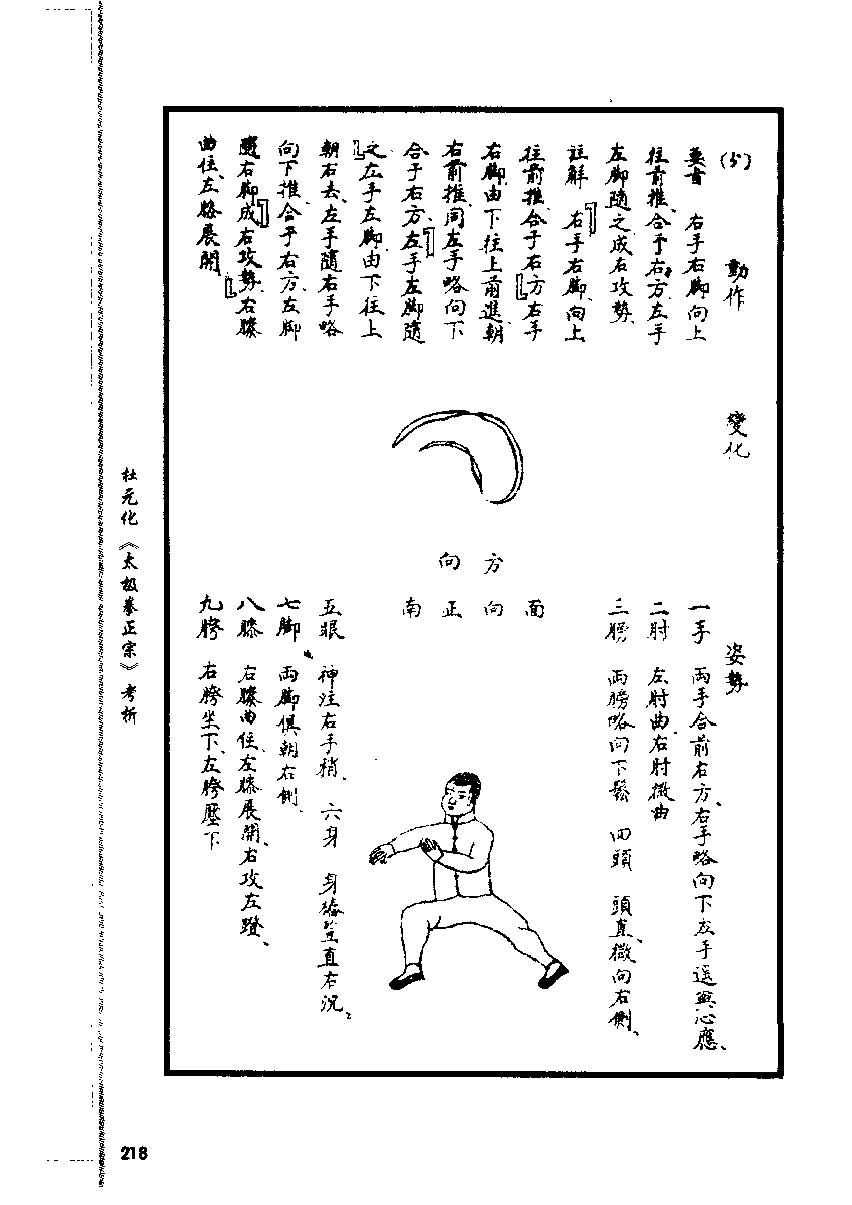 (5) 動作 變化 姿勢
要言 右手右脚向上
往前推、合于右方、左手
左脚隨之成右攻勢、
註解 「右手右脚、向上
往前推、合于右方」左手
右脚、由下往上前進、朝
右前推、同左手略向下
合于右方、「左手左脚隨
之」左手左脚、由下往上
朝右去、左手隨右手略
向下推、合于右方、左脚
隨右脚成「右攻勢」右膝
曲住、左膝展開、
方向
面向正南
一手 兩手合前右方、右手略向下左手遥與心應、
二肘 左肘曲、右肘微曲
三膀 兩膀略向下鬆 四頭 頭直、微向右側、
五眼 神注右手梢、 六身 身樁豎直右沉、
七脚 兩脚俱朝右側、
八膝 右膝曲住、左膝展開、右攻左蹬、
九胯 右胯坐下、左胯壓下
杜元化《太极拳正宗》考析
218